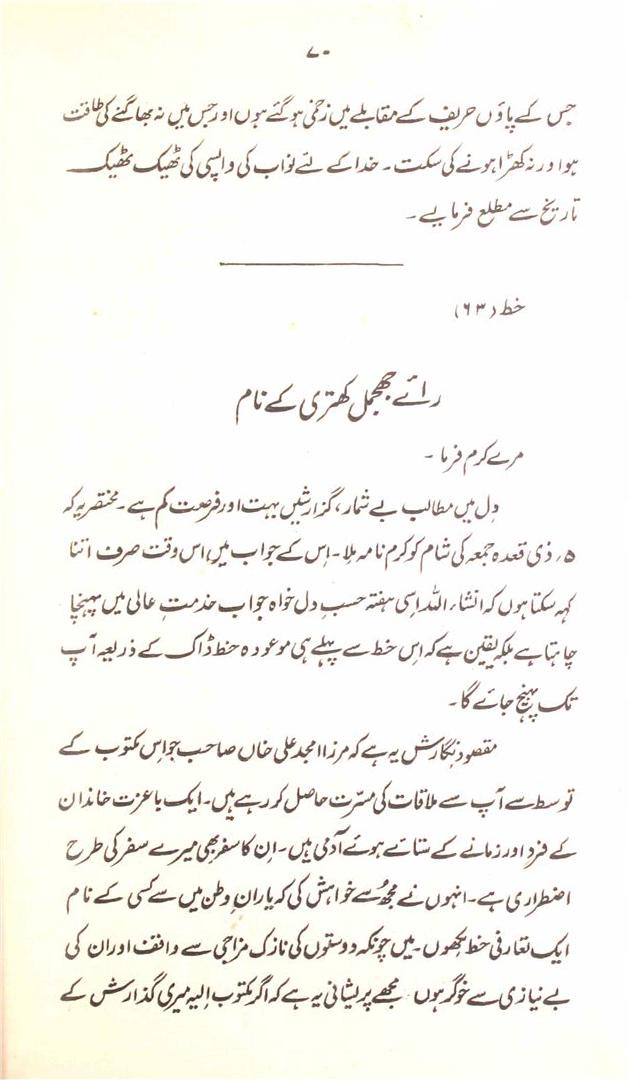 ۷۰
جس کے پاؤں حریف کے مقابلے میں زخمی ہوگئے ہوں اور جس میں نہ بھاگنے کی طاقت
ہو اور نہ کھڑا ہونے کی سکت۔ خدا کے لئے نواب کی واپسی کی ٹھیک ٹھیک
تاریخ سے مطلع فرمایے۔
خط (۶۳)
رائے چھجمل کھتری کے نام
مرے کرم فرما۔
دل میں مطالب بے شمار، گزارشیں بہت اور فرصت کم ہے۔ مختصر یہ کہ
۵، ذی قعدہ جمعہ کی شام کو کرم نامہ ملا۔ اس کے جواب میں اس وقت صرف اتنا
کہہ سکتا ہوں کہ انشاء اللہ اسی ہفتہ حسبِ دل خواہ جواب خدمتِ عالی میں پہنچا
چاہتا ہے بلکہ یقین ہے کہ اس خط سے پہلے ہی موعودہ خط ڈاک کے ذریعہ آپ
تک پہنچ جائے گا۔
مقصودِ نگارش یہ ہے کہ مرزا امجد علی خاں صاحب جو اس مکتوب کے
توسط سے آپ سے ملاقات کی مسرّت حاصل کر رہے ہیں۔ ایک باعزت خاندان
کے فرد اور زمانے کے ستائے ہوئے آدمی ہیں۔ ان کا سفر بھی میرے سفر کی طرح
اضطراری ہے۔ انہوں نے مجھ سے خواہش کی کہ یارانِ وطن میں سے کسی کے نام
ایک تعارفی خط لکھوں۔ میں چونکہ دوستوں کی نازک مزاجی سے واقف اور ان کی
بے نیازی سے خوگر ہوں مجھے پریشانی یہ ہے کہ اگر مکتوب الیہ میری گذارش کے